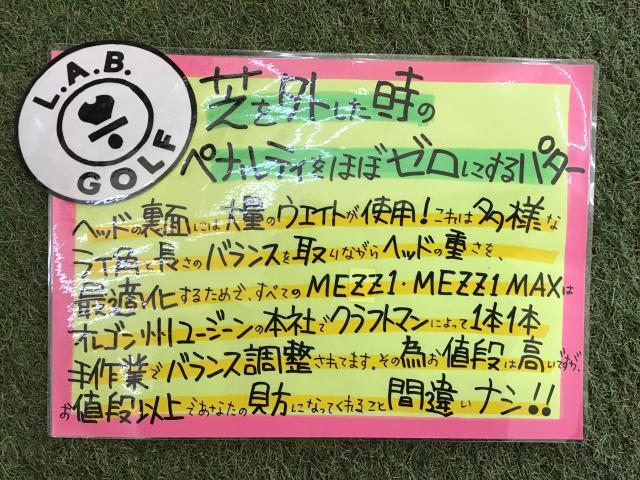 L.A.B.
GOLF
芝を外した時の
ペナルティをほぼゼロにするパター
ヘッドの裏面には大量のウエイトが使用!これは多様な
ライ角と長さのバランスを取りながらヘッドの重さを、
最適化するためで、すべてのMEZZ1・MEZZ1 MAXは
オレゴン州ユージーンの本社でクラフトマンによって1本1本
手作業でバランス調整されてます。その為お値段は高いですが、
お値段以上であなたの見方になってくれること間違いナシ!!